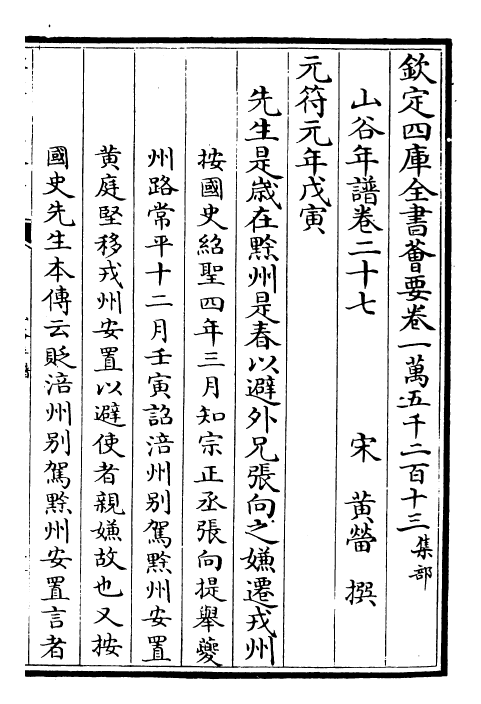 欽定四庫全書薈要卷一萬五千二百十三集部
山谷年譜卷二十七
宋 黄㽦 撰
元符元年戊寅
先生是歲在黔州是春以避外兄張向之嫌遷戎州
按國史紹聖四年三月知宗正丞張向提舉夔
州路常平十二月壬寅詔涪州别駕黔州安置
黄庭堅移戎州安置以避使者親嫌故也又按
國史先生本傳云貶涪州别駕黔州安置言者